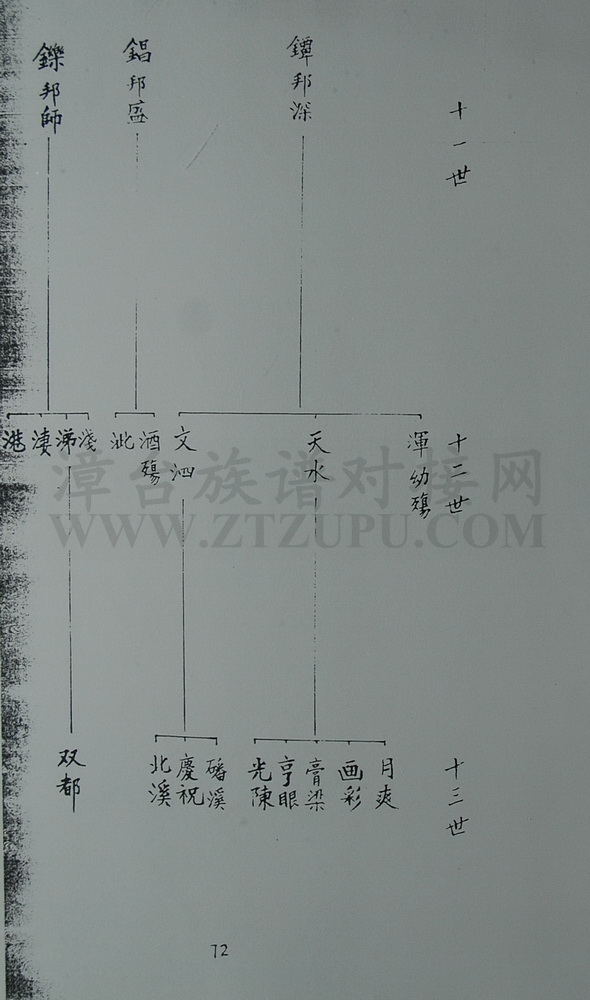 十一世
鐔邦深
錩邦盛
鑠邦師
十二世
渾幼殤
天水
文泗
酒殤
泚
淺
涕
淒
港
漳台族谱对接网
WWW.ZTZUPU.COM
十三世
月爽
画彩
膏梁
亨眼
光陳
磻溪
慶祝
北溪
双都
72